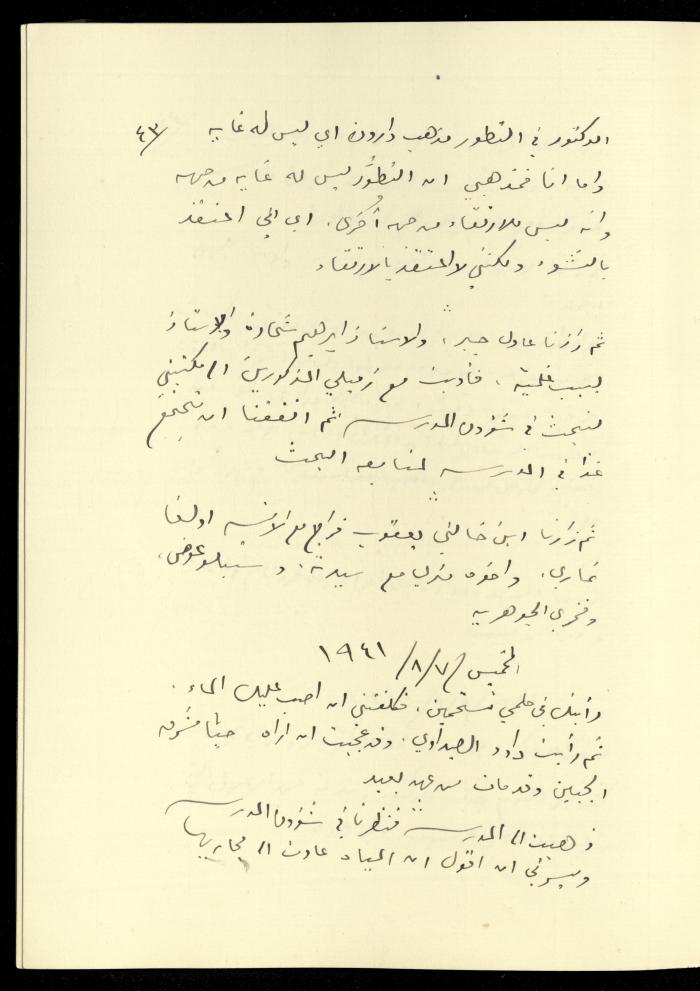 ٤٣/
الدكتور في التطور مذهب دارون اي ليس له غايه
واما انا فمذهبي ان التطوُّر ليس له غايه من جهه
وانه ليس للارتقاء من جهه أُخرى. اي اني اعتقد
بالنشوء ولكنني لا اعتقد بالارتقاء
ثم زارنا عادل جبر، والاستاذ ابراهيم شحادة والاستاذ
لبيب غلمية، فأويت مع زميلي المذكورين الى مكتبتي
لنبحث في شؤون المدرسه ثم اتفقنا ان نجتمع
غدًا في المدرسه لمتابعه البحث
ثم زارنا ابن خالتي يعقوب فراج مع الآنسه اولغا
واخوه متري مع سيدته، و عوض،
وفخري الجوهريه
الخميس ٧/ ٨/ ١٩٤١
رأيتك في حلمي تستحمين، فكلفتني ان اصب عليك الماء.
ثم رأيت داود الصيداوي، وقد عجبت ان اراه حيًا مشرق
الجبين وقد مات من عهد بعيد
ذهبت الى المدرسه فنظرنا في شؤون المدرسه
ويسرني ان اقول ان المياه عادت الى مجاريها